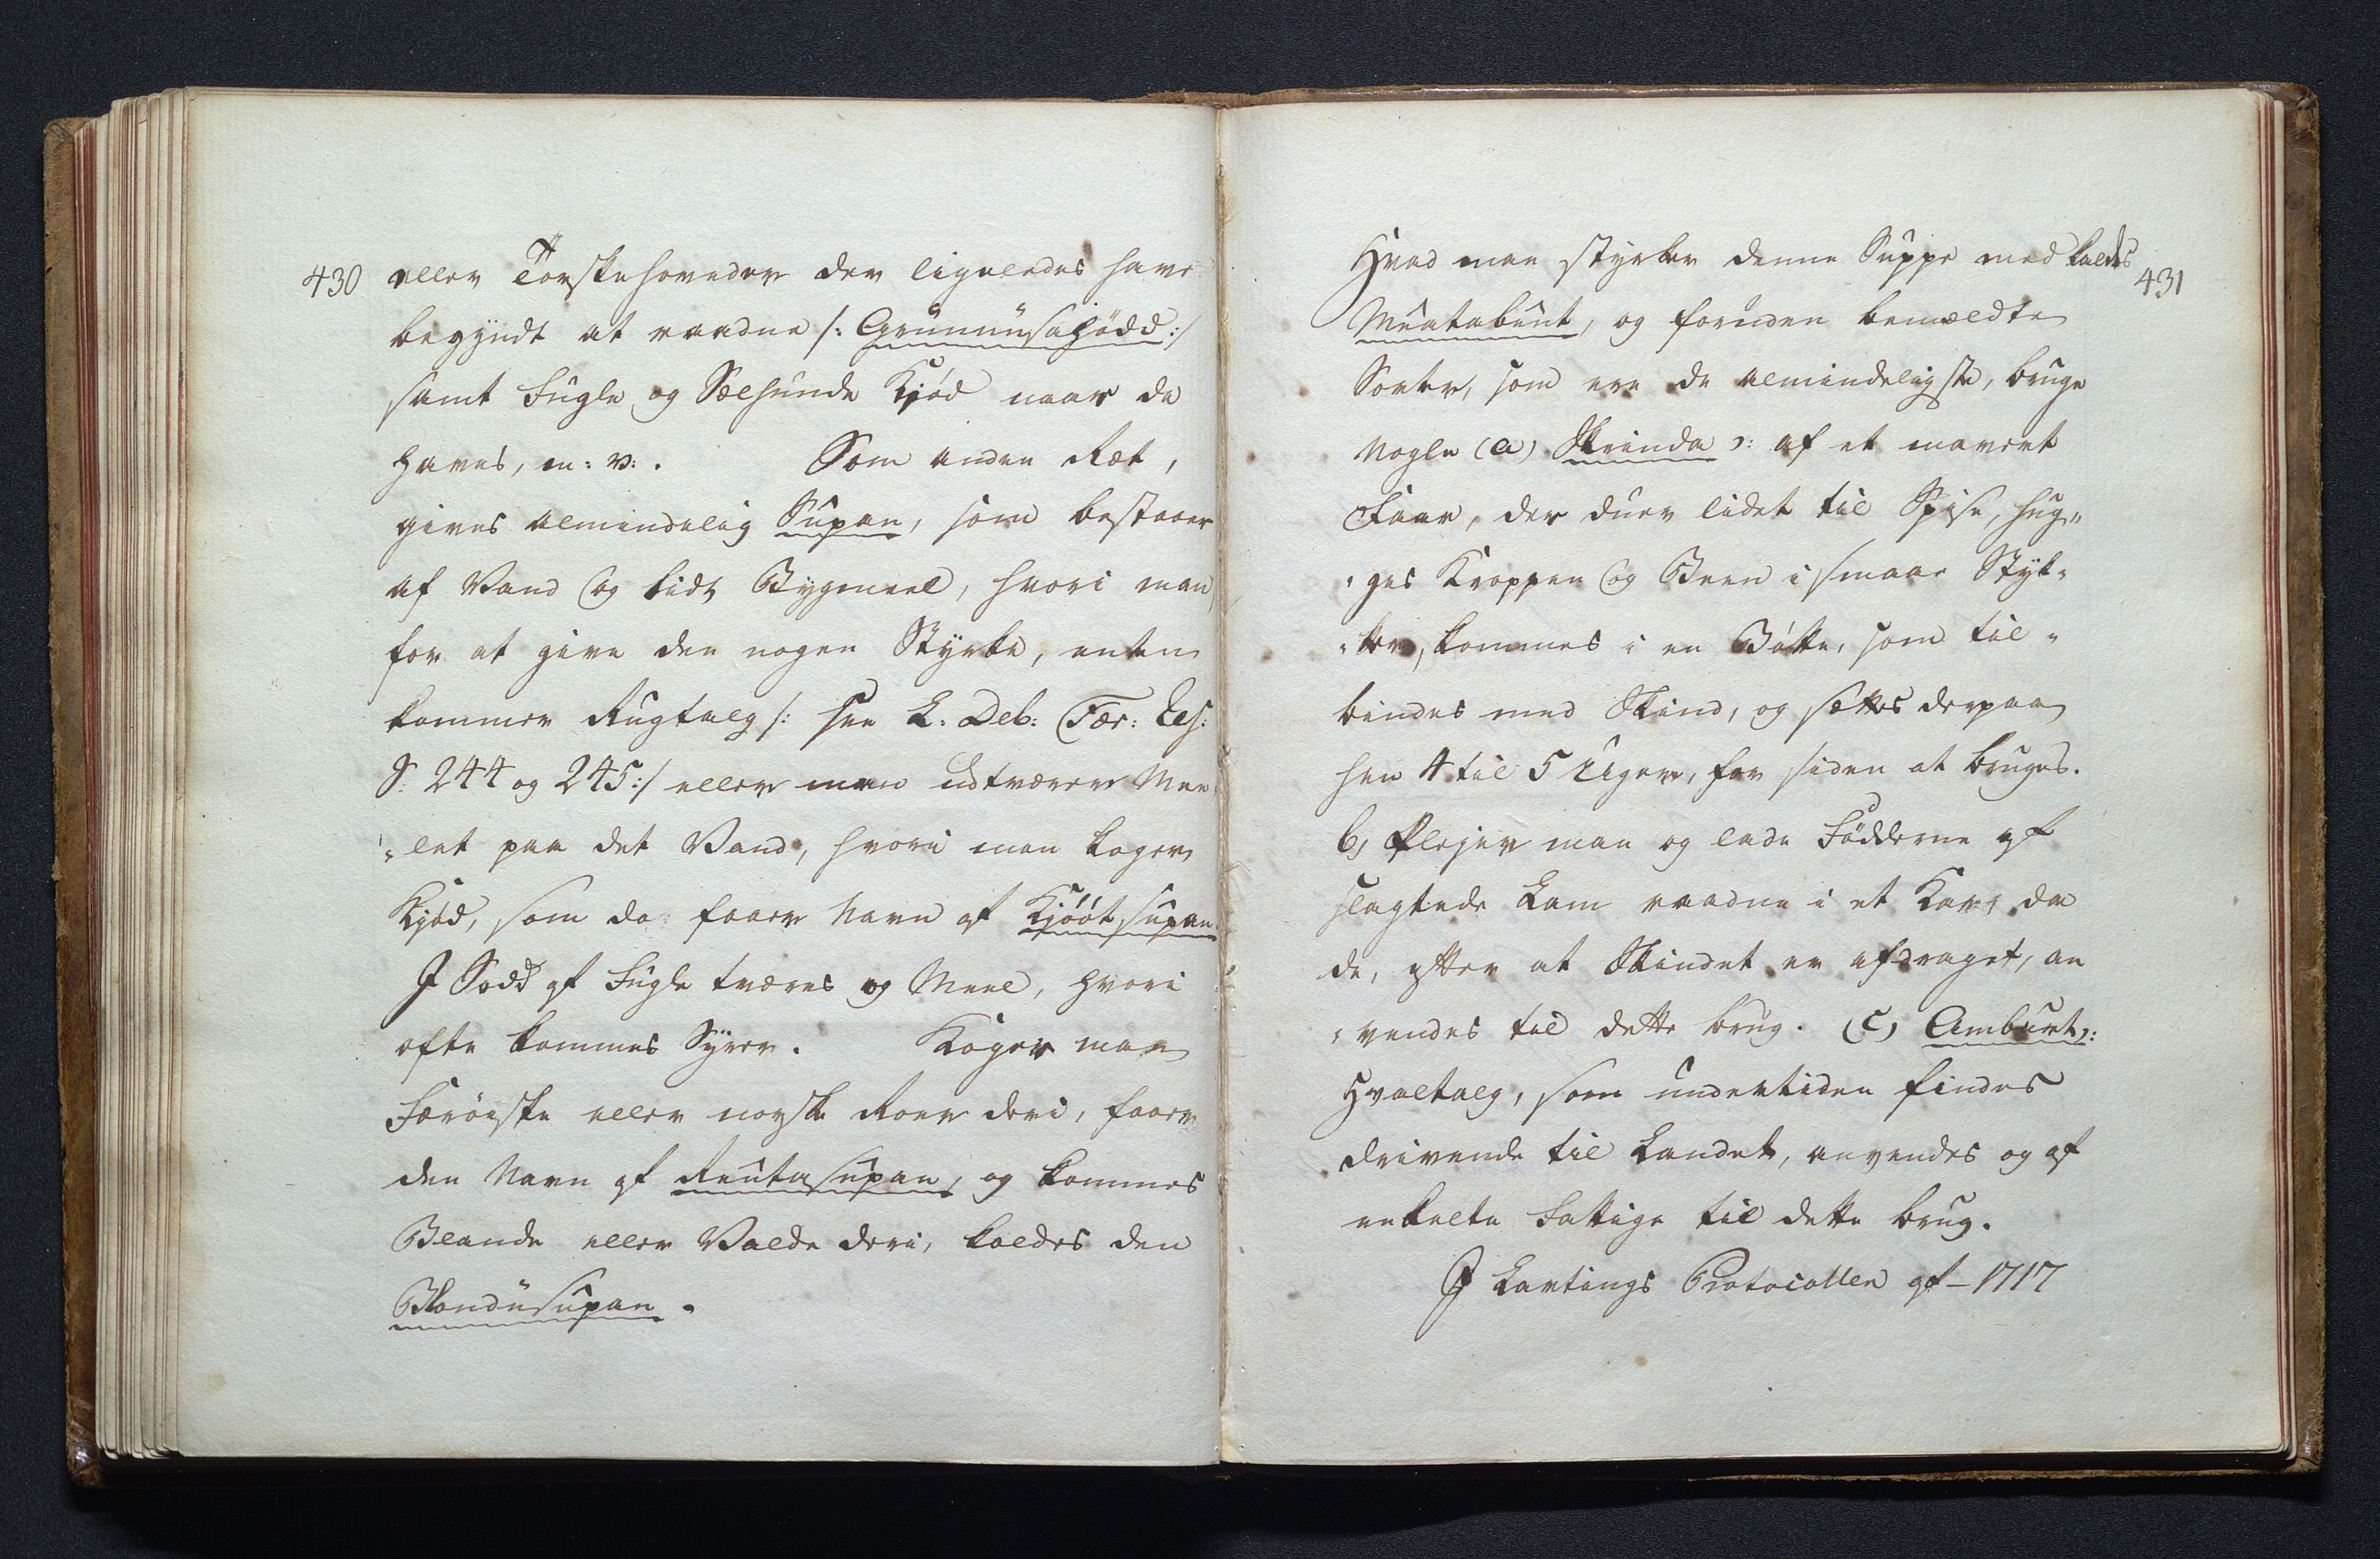 430
eller Torskehoveder der ligeledes have
begyndt at raadne /: Grunnusahödd :/
samt Fugle og Sælhunde Kjød naar de
haves, m: v: . Som anden Ret,
gives almindelig Supan, som bestaaer
af Vand og lidt Bygmeel, hvori man
for at give den nogen Styrke, enten
kommer Rugtalg /: see L: Deb: Fær: Ees:
S: 244 og 245 :/ eller man udtværer Mee-
-let paa det Vand, hvori man koger
Kjød, som da faaer Navn af Kjöötsupan
I Sodd af Fugle tværes og Meel, hvori
ofte kommes Syrer. Koger man
Færøiske eller norske Roer deri, faaer
den Navn af Reutasupan, og kommes
Blande eller Valde deri, kaldes den
Blandusupan.
431
Hvad man styrker denne Suppe med kaldes
Meatabeut, og foruden bemældte
Sorter, som ere de almindeligste, bruge
Nogle (a) Skrinda ɔ: af et mavert
Faar, der duer lidet til Spise, hug-
-ges Kroppen og Been i smaae Styk-
-ker, kommes i en Bøtte, som til-
bindes med Skind, og sættes derpaa
hen 4 til 5 Uger, for siden at bruges.
b) Plejer man og lade Födderne af
slagtede Lam raadne i et Kar, da
de, efter at Skindet er afdraget, an
-vendes til dette brug. (c) Amburt ɔ:
Hvaltalg, som undertiden findes
drivende til Landet, anvendes og af
enkelte Fattige til dette brug.
I Lavtings Protocollen af - 1717